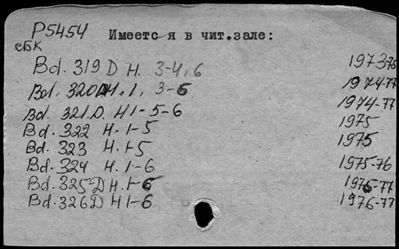 P5454 Имеется в чит.зале:
сбк
Bd. 319 D H. 3-4,6 1973-75
Bd. 320D H. 1, 3-6 1974-77
Bd. 321 D. H 1-5-6 1974-77
Bd. 322 H. 1-5 1975
Bd. 323 H. 1-5 1975
Bd. 324 H. 1-6 1975-76
Bd. 325-D H. 1-6 1976-77
Bd. 326 D H 1-6 1976-77